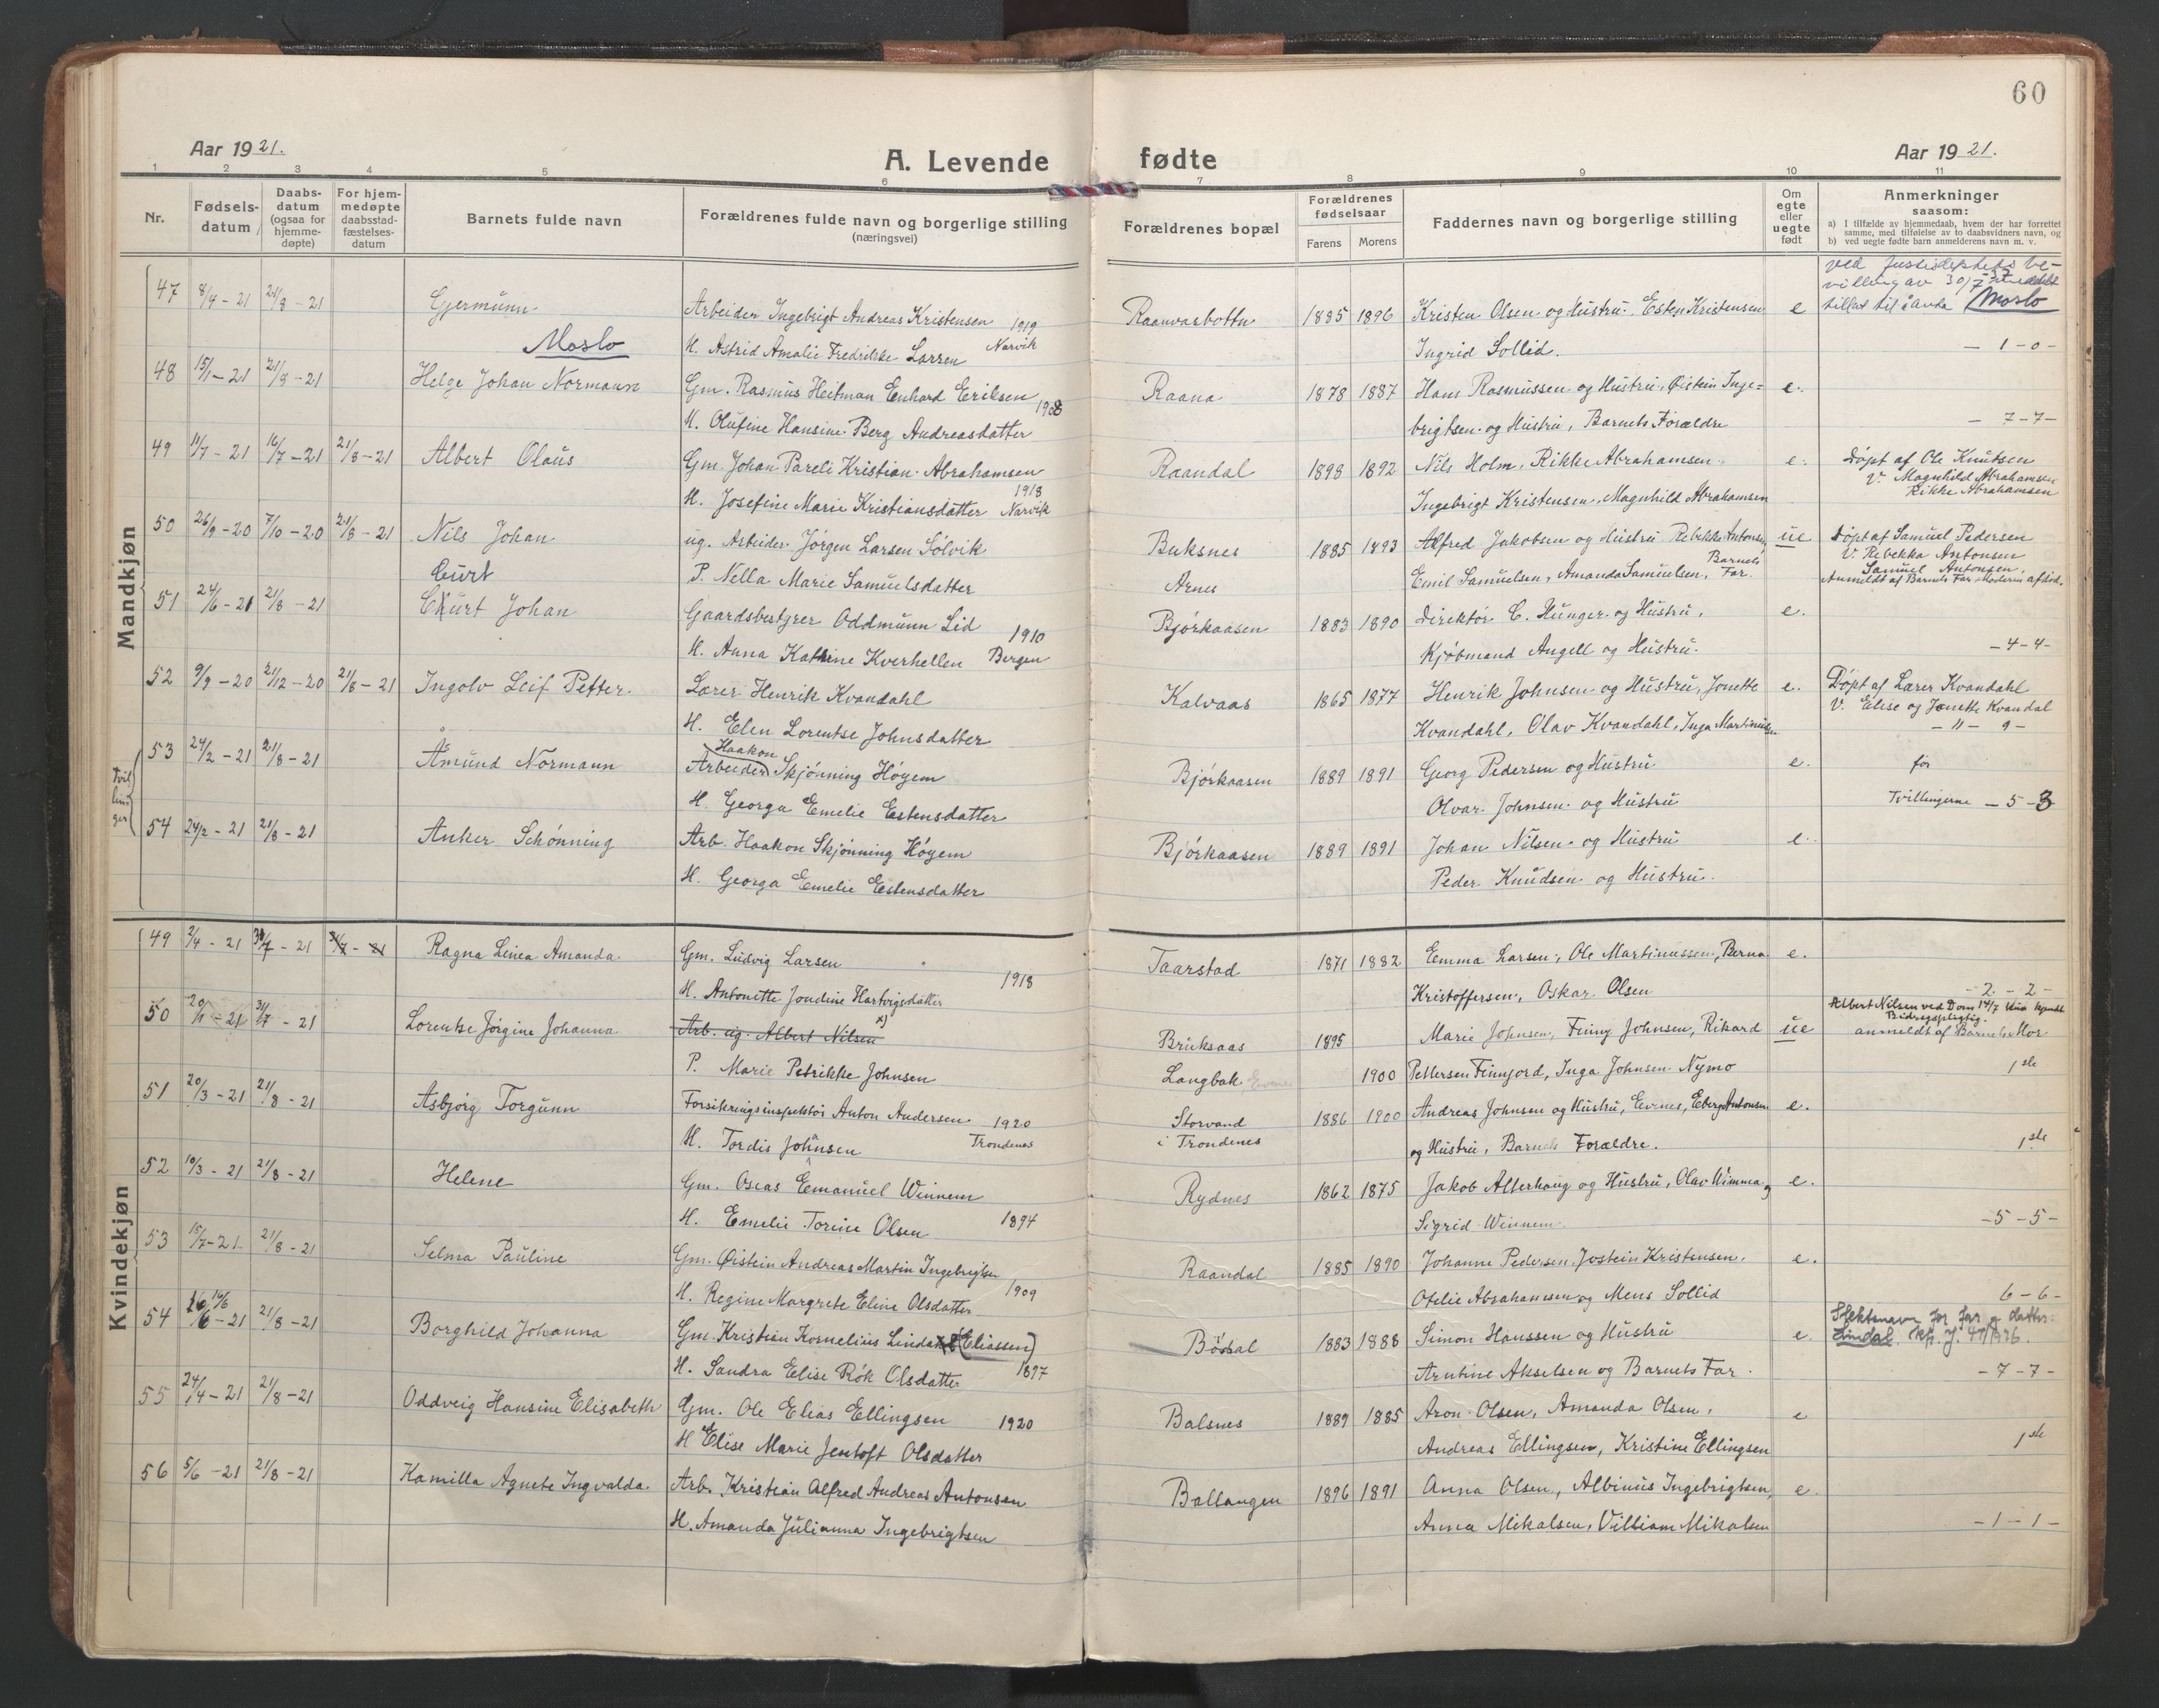 60
Aar 1921.
A. Levende fødte
Aar 1921.
1 2 3 4 5 6 7 8 9 10 11
Nr.
Fødsels-
datum
Daabs-
datum
(ogsaa for
hjemme-
døpte)
For hjem-
medøpte
daabsstad-
fæstelses-
datum
Barnets fulde navn
Forældrenes fulde navn og borgerlige stilling
(næringsvei)
Forældrenes bopæl
Forældrenes
fødselsaar
Farens Morens
Faddernes navn og borgerlige stilling
Om
egte
eller
uegte
født
Anmerkninger
saasom:
a) I tilfælde av hjemmedaab, hvem der har forrettet
samme, med tilføielse av to daabsvidners navn, og
b) ved uegte fødte barn anmelderens navn m. v.
Mandkjøn
47 8/4-21 21/8-21 Germunn Arbeider Ingebrigt Andreas Kristensen 1919 Raanvasbottn 1895 1896 Kristen Olsen og Hustru, Esten Kristensen e
tillat til å anta Moslo
Moslo H. Astrid Amalie Fredrikke Larsen Narvik Ingrid Sollid. - 1-0-
48 15/1-21 21/8-21 Helge Johan Normann Gm. Rasmus Heitman Enhard Eriksen 1908 Raana 1878 1887 Hans Rasmussen og Hustru, Øistein Inge= e.
H. Olufine Hansine Berg Andreasdatter brigtsen og Hustru, Barnets Forældre - 7-7-
49 11/7-21 16/7-21 21/8-21 Albert Olaus Gm. Johan Pareli Kristian Abrahamsen Raandal 1898 1892 Nils Holm, Rikke Abrahamsen e. Døpt af Ole Knutsen
V. Magnhild Abrahamsen
Rikke Abrahamsen
H. Josefine Marie Kristiansdatter 1918 Narvik Ingebrigt Kristensen, Magnhild Abrahamsen
50 26/9-20 7/10-20 21/8-21 Nils Johan ug. Arbeider Jørgen Larsen Sølvik Buksnes 1885 1893 Alfred Jakobsen og Hustru Rebekka Antonsen, ue Døpt af Samuel Pedersen
V. Rebekka Antonsen
Samuel Antonsen.
Anmeldt af Barnets Far, Moderen afdød.
P. Nella Marie Samuelsdatter Arnes Emil Samuelsen, Amanda Samuelsen, Barnets Far.
Curt
51 24/6-21 21/8-21 Ckurt Johan Gaardsbestyrer Oddmunn Lid 1910 Bjørkaasen 1883 1890 Direktør C. Hunger og Hustru, e.
H. Anna Kathrine Kverhellen Bergen Kjøbmand Angell og Hustru. -4-4-
52 9/9-20 21/12-20 21/8-21 Ingolv Leif Petter. Lærer Henrik Kvandahl Kalvaas 1865 1877 Henrik Johnsen og Hustru, Jonette e. Døpt af Lærer Kvandahl
V. Elise og Jonette Kvandal
H. Elen Lorentse Johnsdatter Kvandahl, Olav Kvandahl, Inga Martinussen - 11 - 9 -
Tvil
lin
ger
53 24/2-21 21/8-21 Åmund Normann Arbeider Haakon Skjønning Høyem Bjørkaasen 1889 1891 Georg Pedersen og Hustru e. for
H. Georga Emelie Estensdatter Olvar Johnsen og Hustru Tvillingerne - 5-3
54 24/2-21 21/8-21 Anker Schønning Arb. Haakon Skjønning Høyem Bjørkaasen 1889 1891 Johan Nilsen og Hustru e.
H. Georga Emelie Estensdatter Peder Knudsen og Hustru.
Kvindekjøn
49 2/4-21 31/7-21 31/7-21 Ragna Linea Amanda Gm. Ludvig Larsen 1918 Taarstad 1871 1882 Emma Larsen, Ole Martinussen, Berna e.
H. Antonette Jondine Hartvigsdatter Kristoffersen, Oskar Olsen -2-2-
50 20/1-21 31/7-21 Lorentse Jørgine Johanna Arb. ug. Albert Nilsen x) Bruksaas 1895 Marie Johnsen, Finny Johnsen, Rikard ue Albert Nilsen ved Dom 14/7
Bidragspligtig.
anmeldt af Barnets Mor
P. Marie Petrikke Johnsen Langbak 1900 Pettersen Finnjord, Inga Johnsen Nymo 1ste
51 20/3-21 21/8-21 Asbjørg Torgunn Forsikringsinspektør Anton Andersen 1920 Storvand 1886 1900 Andreas Johnsen og Hustru, Evenes, Eberg Antonsen e.
H. Tordis Johnsen Trondenes i Trondenes og Hustru, Barnets Forældre. 1ste
52 10/3-21 21/8-21 Helene Gm. Oscar Emanuel Winnem Rydnes 1862 1875 Jakob Alterhaug og Hustru, Olav Wimma og e.
H. Emelie Torine Olsen 1894 Sigrid Winnem. -5-5-
53 15/7-21 21/8-21 Selma Pauline Gm. Øistein Andreas Martin Ingebrigtsen Raandal 1885 1890 Johanne Pedersen, Jostein Kristensen, e.
H. Regine Margrete Eline Olsdatter 1909 Otelie Abrahamsen og Mens Sollid 6-6-
54 16/6-21 21/8-21 Borghild Johanna Gm. Kristian Kornelius Lindal (Eliassen) Bødal 1883 1888 Simon Hanssen og Hustru e. Slektsnavn for far og datter:
Lindal.
H. Sandra Elise Røk Olsdatter 1897 Arntine Akselsen og Barnets Far. -7-7-
55 24/4-21 21/8-21 Oddveig Hansine Elisabeth Gm. Ole Elias Ellingsen 1920 Balsnes 1889 1885 Aron Olsen, Amanda Olsen, e
H Elise Marie Jentoft Olsdatter Andreas Ellingsen, Kristine Ellingsen 1ste
56 5/6-21 21/8-21 Kamilla Agnete Ingvalda. Arb. Kristian Alfred Andreas Antonsen Ballangen 1896 1891 Anna Olsen, Albinus Ingebrigtsen, e.
H. Amanda Julianna Ingebrigtsen Anna Mikalsen, Villiam Mikalsen -1-1-